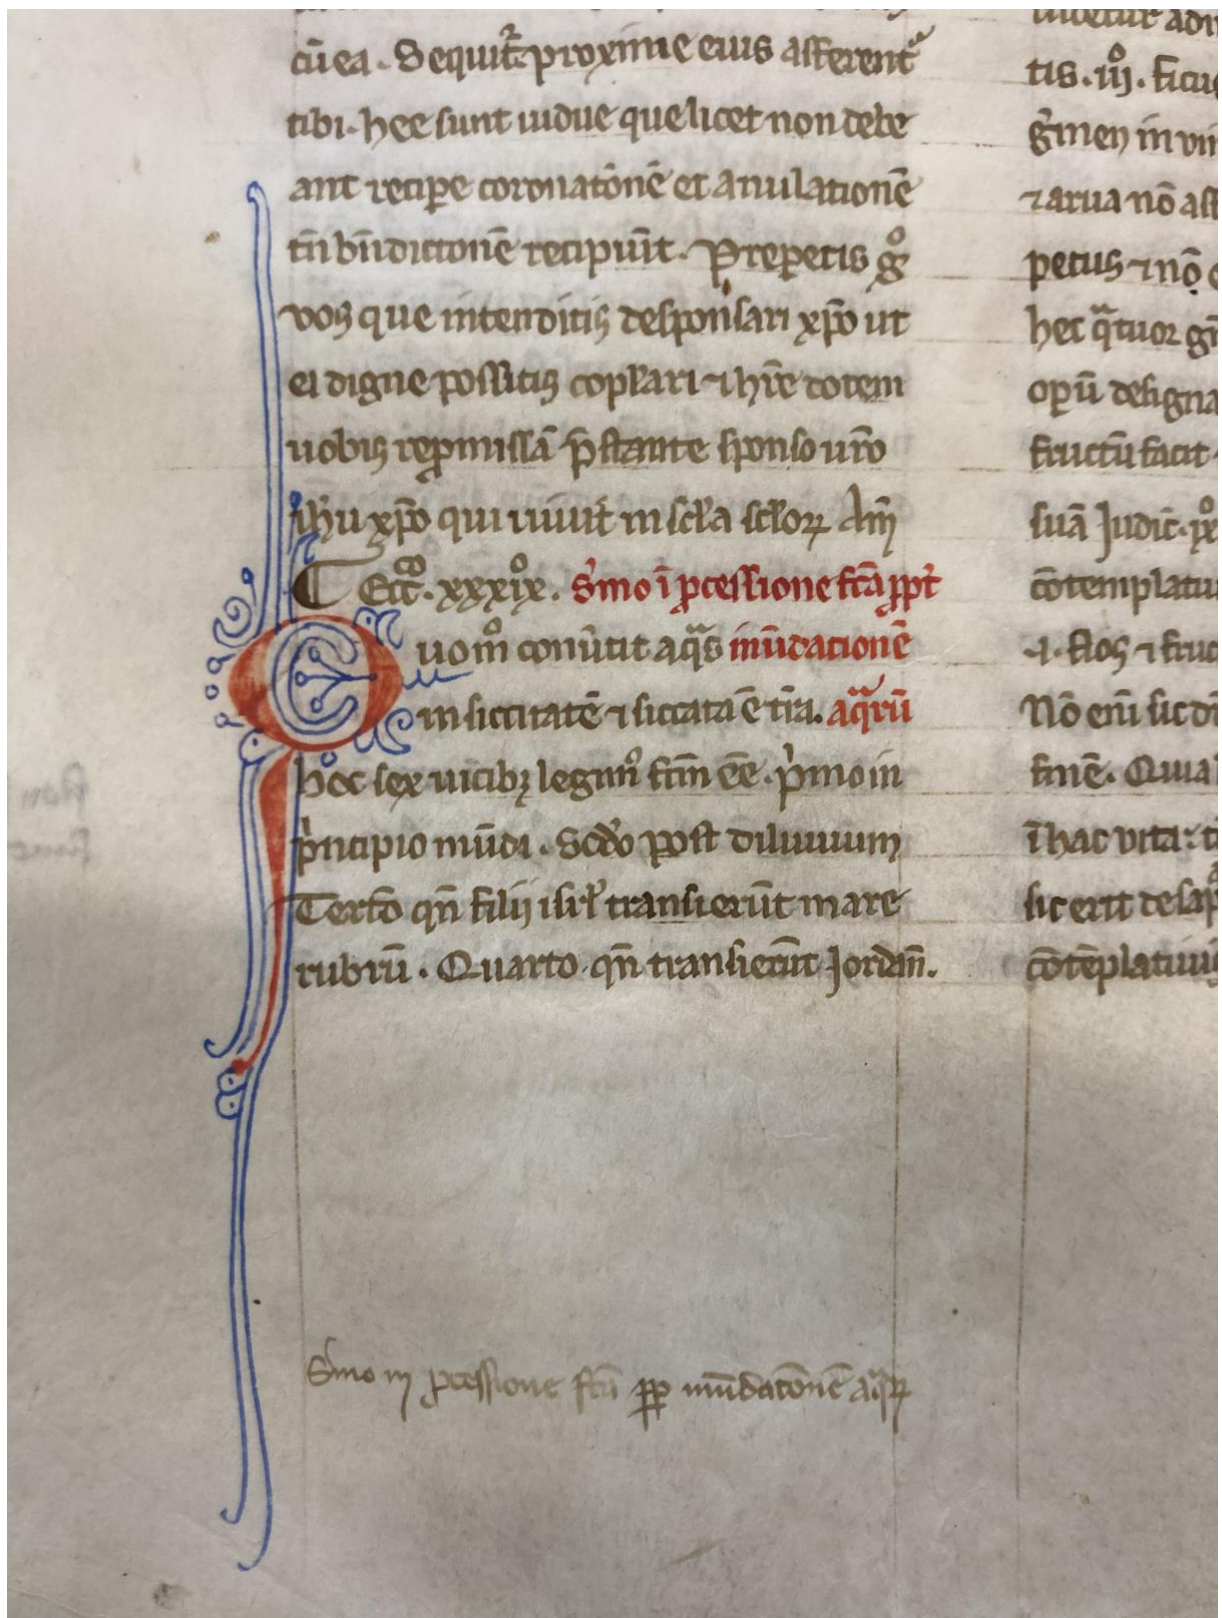 cū ea . Sequit᷑ proxime eius afferentᷓ
tibi . hee sunt uidue que licet non debe
ant recipe coronatōnē et anulationē
tn̄ bn̄dictōnē recipiūt . Preperetis gͦ
vos que intenditis desponsari xp̄o ut
ei digne possitis copl̄ari ⁊ hr̄e dotem
uobis repmissā p̄stante sponso ur̄o
ih̄u xp̄o qui uiuit in scl̄a scl̄oꝝ Am̄
Ecc̄ᷓ . xxxixͦ . S̄mo ī ꝓcessione fc̄a ꝓpt̄
Quomͦ conūtit aqᷓs inūdationē
in siccitatē ⁊ siccata ē tr̄a . aqᷓrū
hoc sex uicibꝫ legimꝰ fc̄m ēe . pͥmo in
pͥncipio mūdi . Scd̄o post diluuium
Tertō qn̄ filij isrl̄ transierūt mare
rubrū . Quarto qn̄ transierūt Jordan̄ .
tis . iijͦ . ficu
gͥmen in vin
⁊ arua nō aff
pecus ⁊ nō e
hec qᷓtuor gn̄
opū designa
fructū facit
suā Judic̄ . ixͦ
cōtemplatiu
.i. flos ⁊ fruc
Nō enī sic di
finē . Quia
ī hac vita : t
sic erit de sap
cōtēplatiuis
S̄mo in ꝓcessione fc̄a ꝓp mūdatōnē aqᷓꝝ